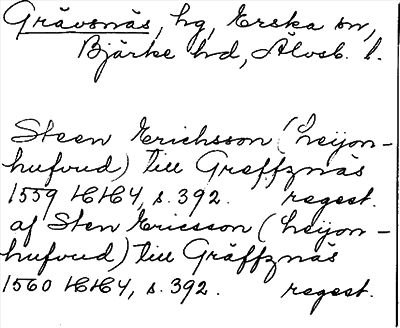 Grävsnäs, hg, Erska sn,
Bjärke hd, Älvsb. l.
Steen Erichsson (Leijon-
hufvud) till Greffznäs
1559 HH4, s. 392. regest.
af Sten Ericsson (Leijon-
hufvud) till Gräffznäs
1560 HH4, s. 392. regest.